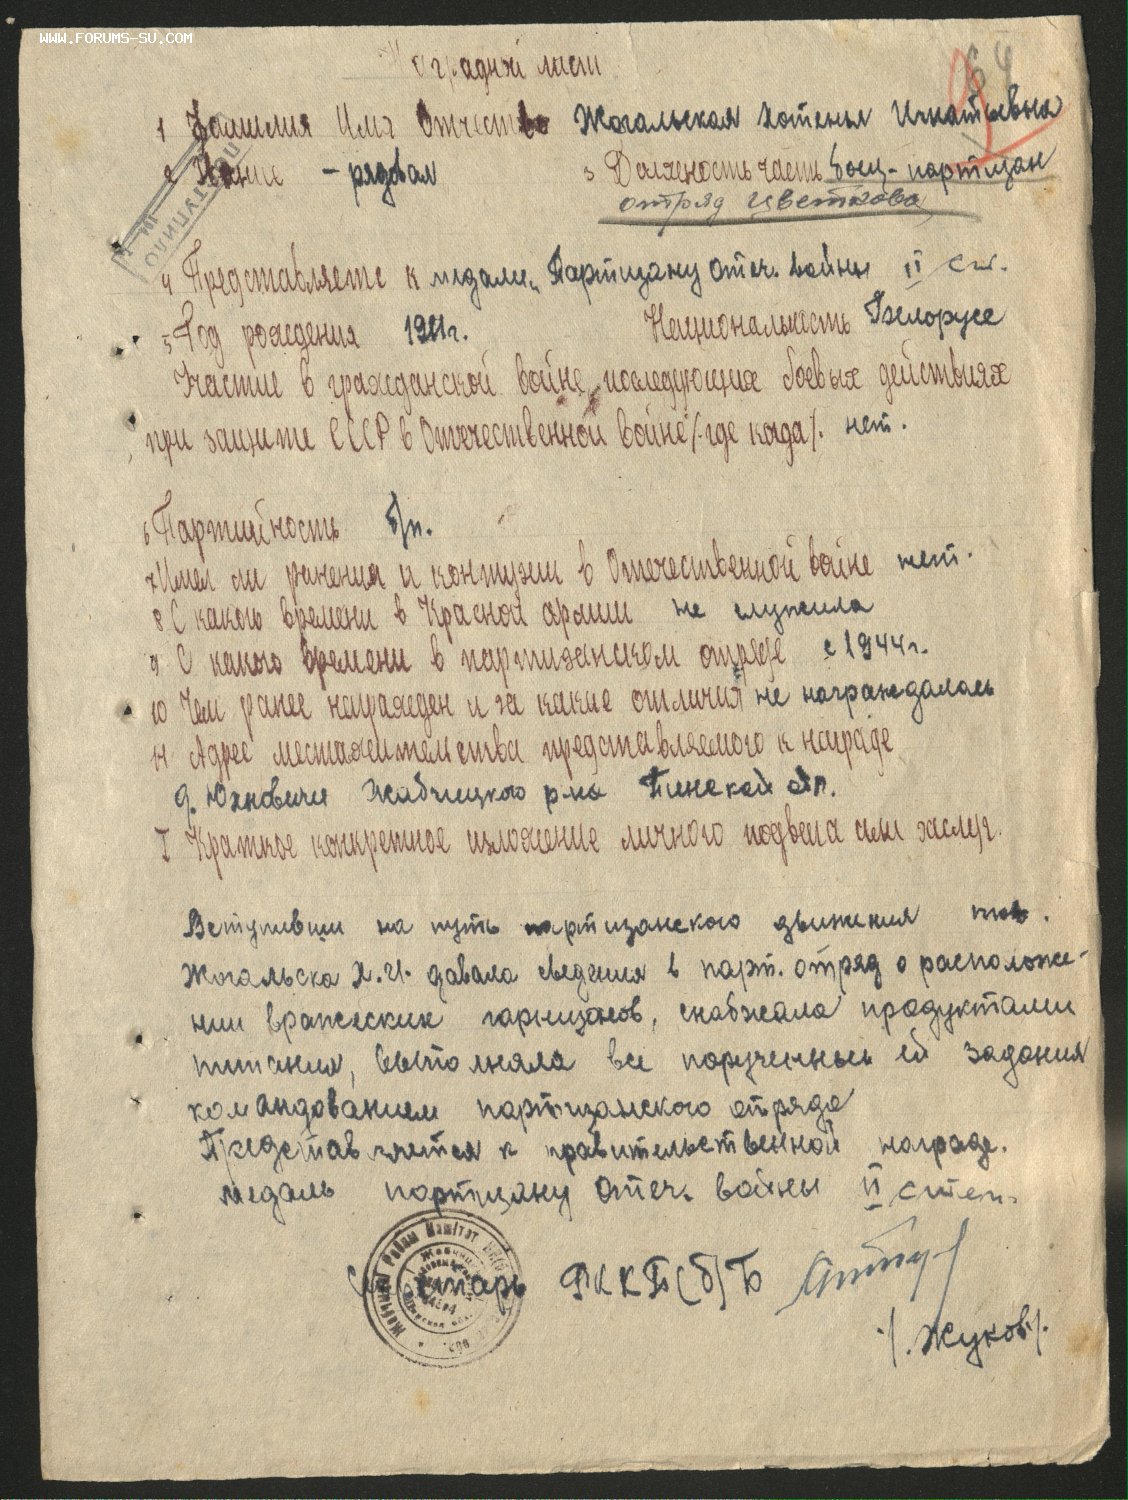 WWW.FORUMS-SU.COM
64
Наградной лист
1 Фамилия Имя Отчество Жогальская Хотенья Игнатьевна
2 Звание – рядовая 3 Должность часть боец-партизан
отряд Цветкова
ПОСТУПИЛО
4 Представляетс к медали „Партизану Отеч. войны II ст.
5 Год рождения Национальность Белорусс
Участие в гражданской войне, последующих боевых действиях
при защите СССР в Отечественной войне /где когда/. нет.
6 Партийность б/п.
7 Имел ли ранения и контузии в Отечественной войне нет.
8 С какого времени в Красной армии не служила
9 С какого времени в партизанском отряде с 1944г.
10 Чем ранее награжден и за какие отличия не награждалась
11 Адрес местожительства представляемого к награде
д. Юхновичи Жабчицкого р-на Пинской обл.
I Краткое конкретное изложение личного подвега или заслуг.
Вступивши на путь партизанского движения тов.
Жогальска Х.И. давала сведения в парт. отряд о расположе-
нии вражеских гарнизонов, снабжала продуктами
питания, выполняла все порученные ей задания
командованием партизанского отряда
Представляется к правительственной награде.
медаль партизану Отеч. войны II степ.
Секретарь РККП(б)Б
/. Жуков/.